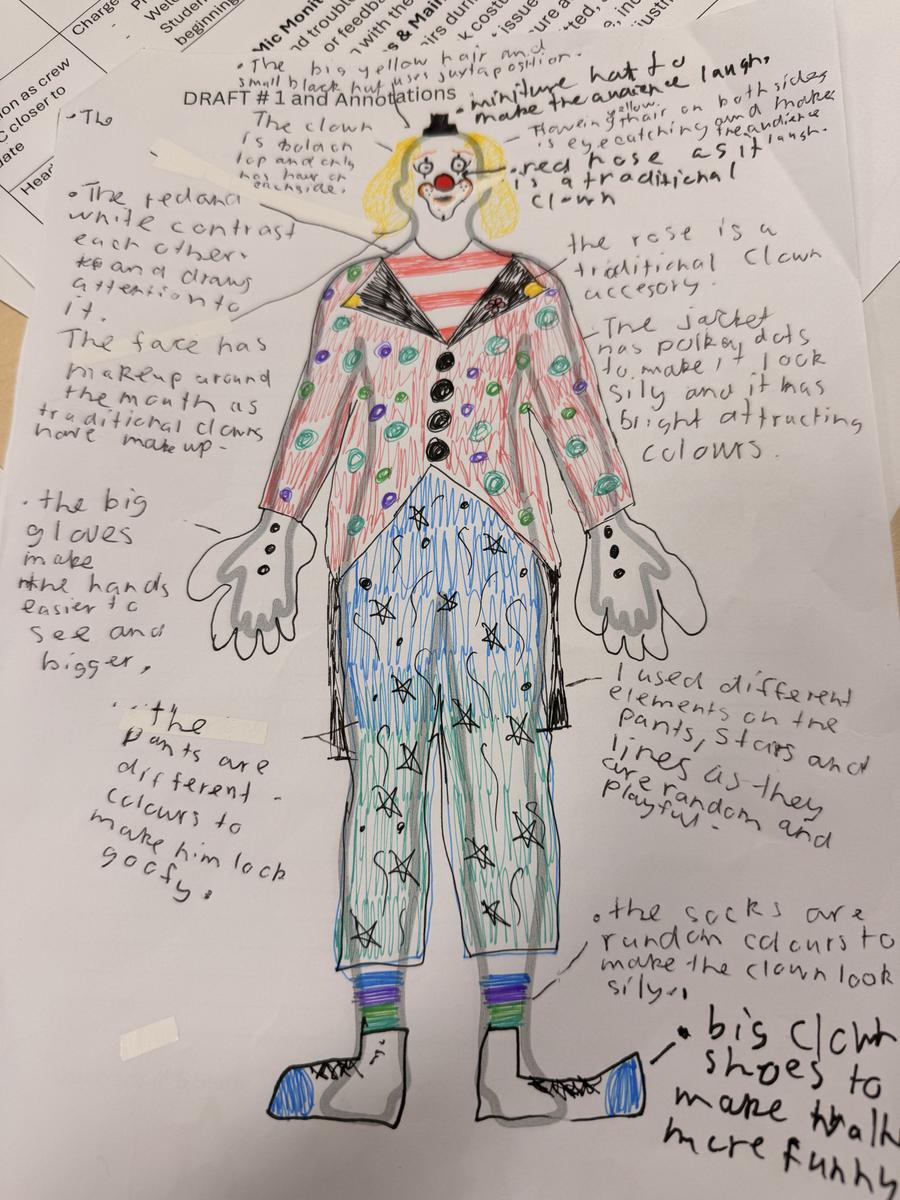 Charge
Student
beginning
Mic Monit
nd troubl
or feedba
with the
s & Main
irs durin
costu
issue
ure a
on as crew
C closer to
date
Head
• The big yellow hair and
small black hat uses juxtaposition.
DRAFT # 1 and Annotations
• miniture hat to
make the audience laugh.
• The
The clown
is bald on
top and only
has hair on
each side.
yellow
Flowing hair on both sides
is eyecatching and makes
the audience
laugh.
• red nose as it
is a traditional
clown
• The red and
white contrast
each other.
and draws
attention to
it.
the rose is a
traditional clown
accesory.
The face has
makeup around
the mouth as
traditional clowns
have make up.
• The jacket
has polka dots
to make it look
sily and it has
bright attracting
colours.
• the big
gloves
make
the hands
easier to
see and
bigger,
• the
pants are
different
colours to
make him look
goofy.
I used different
elements on the
pants, Stars and
lines as they
are random and
playful.
• the socks are
random colours to
make the clown look
sily.
• big clown
shoes to
make
more funny